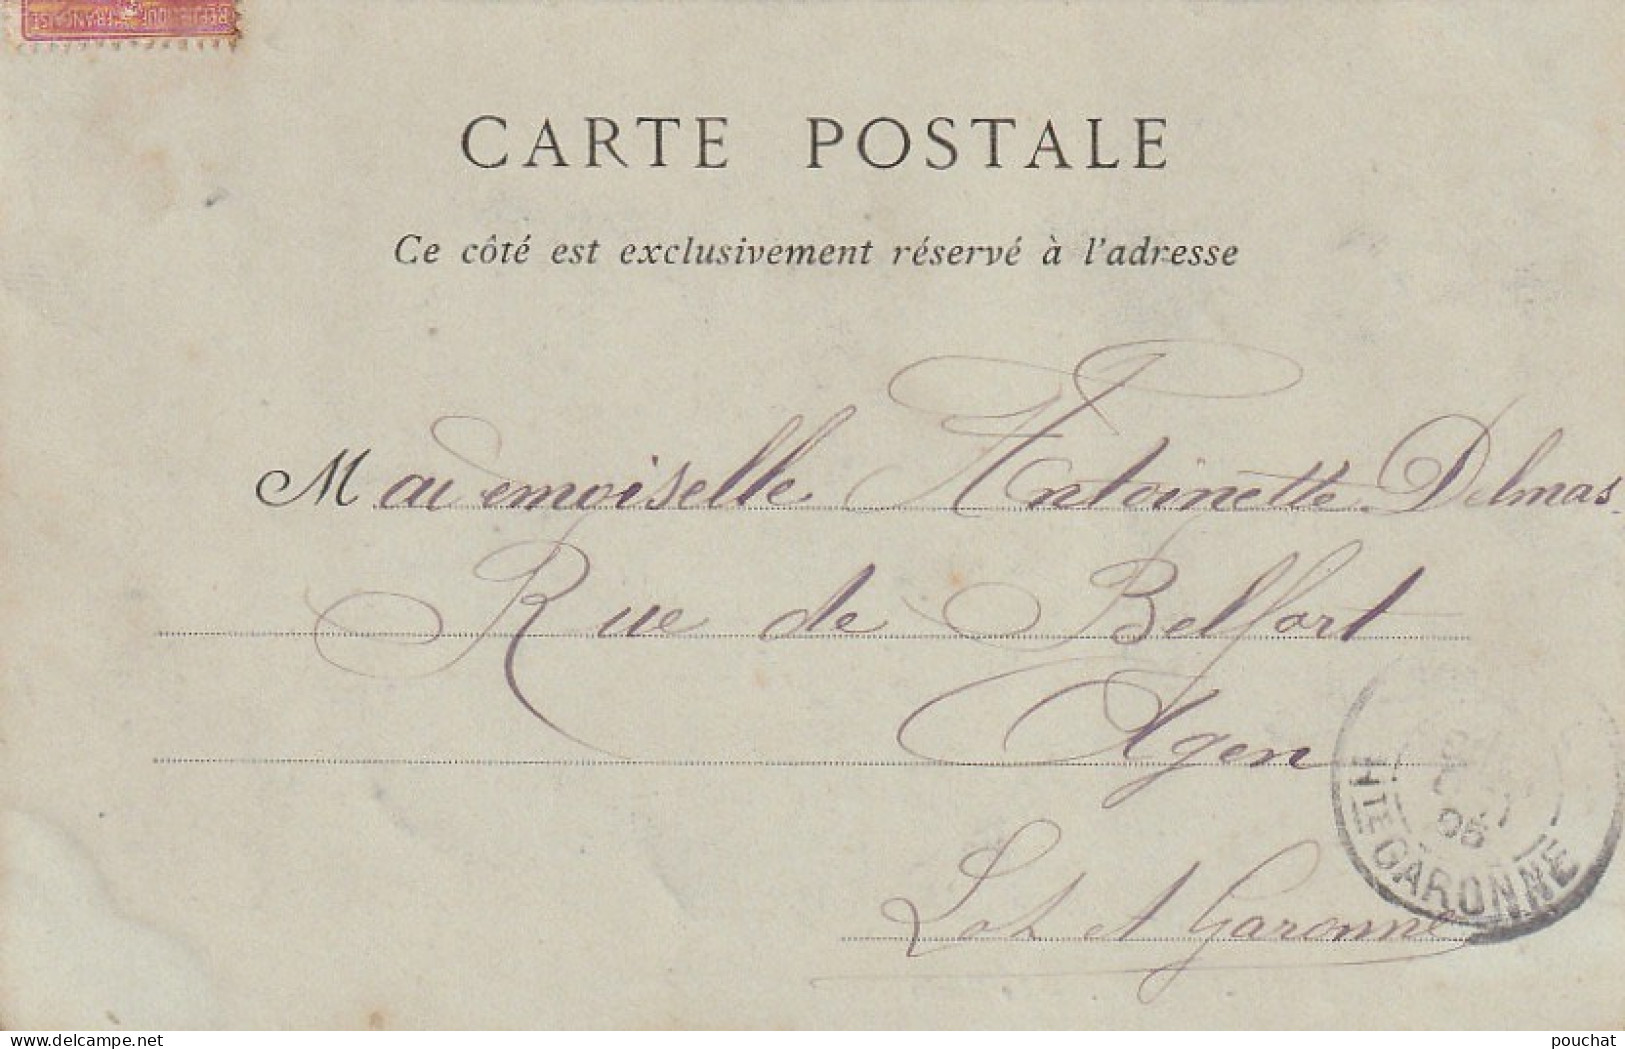 REPUBLIQUE FRANÇAISE
CARTE POSTALE
Ce côté est exclusivement réservé à l'adresse
Mademoiselle Antoinette Delmas
Rue de Belfort
Agen
Lot et Garonne
06
HTE GARONNE
delcampe.net
pouchat